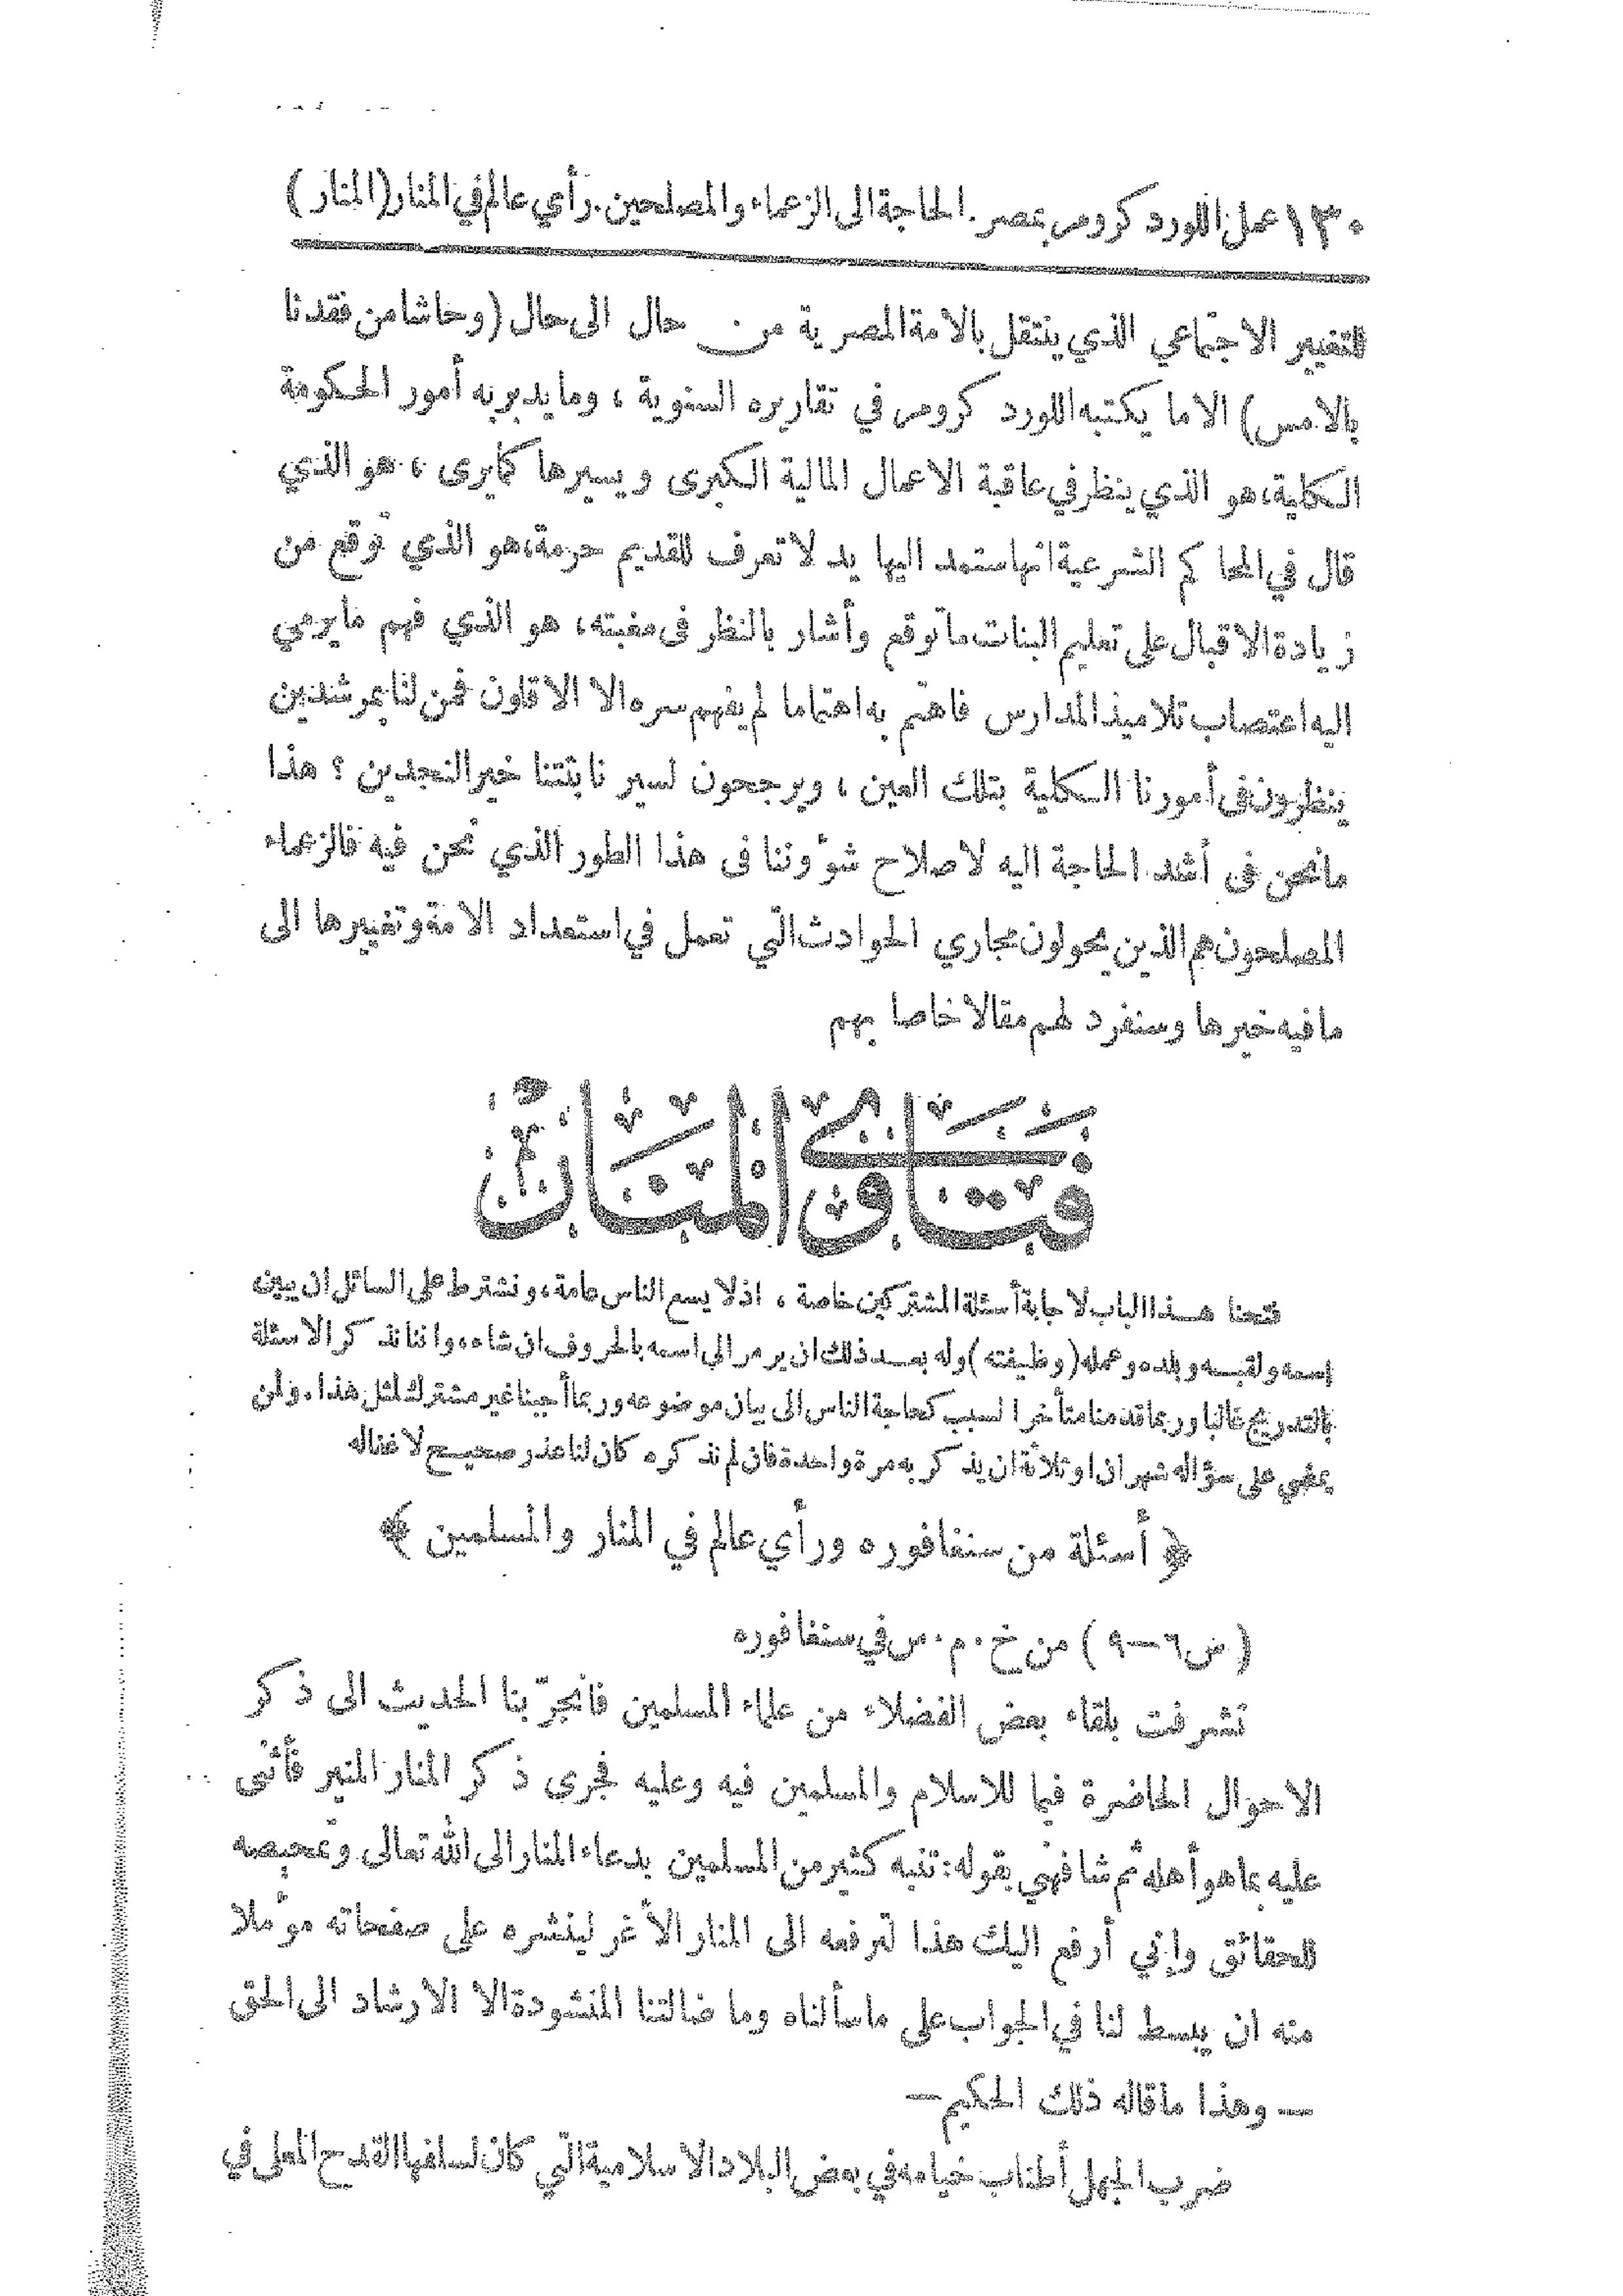 ١٣٠ عمل اللورد كرومر بمصر. الحاجة الى الزعماء والمصلحين. رأي عالم في المنار (المنار)
للتغيير الاجتماعي الذي ينتقل بالامة المصرية من حال الى حال (وحاشا من فقدنا
بالامس) الا ما يكتبه اللورد كرومر في تقاريره السنوية ، وما يدبر به أمور الحكومة
الكلية، هو الذي ينظر في عاقبة الاعمال المالية الكبرى ويسيرها كما يرى ، هو الذي
قال في المحاكم الشرعية انها ستمد اليها يد لا تعرف للقديم حرمة، هو الذي توقع من
زيادة الاقبال على تعليم البنات ما توقع وأشار بالنظر فى مغبته، هو الذي فهم ما يرمي
اليه اعتصاب تلاميذ المدارس فاهتم به اهتماما لم يفهم سره الا الاقلون فمن لنا بمرشدين
ينظرون فى أمورنا الكلية بتلك العين ، ويرجحون لسير نابتتنا خير النجدين ؟ هذا
ما نحن فى أشد الحاجة اليه لاصلاح شؤوننا فى هذا الطور الذي نحن فيه فالزعماء
المصلحون هم الذين يحولون مجاري الحوادث التي تعمل في استعداد الامة وتغييرها الى
ما فيه خيرها وسنفرد لهم مقالا خاصا بهم
فتاوى المنار
فتحنا هذا الباب لاجابة أسئلة المشتركين خاصة ، اذ لا يسع الناس عامة، ونشترط على السائل ان يبين
اسمه ولقبه وبلده وعمله (وظيفته) وله بعد ذلك ان يرمز الى اسمه بالحروف ان شاء، واننا نذكر الاسئلة
بالتدريج غالبا وربما قدمنا متأخرا لسبب كحاجة الناس الى بيان موضوعه وربما أجبنا غير مشترك لمثل هذا. ولمن
يمضي على سؤاله شهران او ثلاثة ان يذكر به مرة واحدة فان لم نذكره كان لنا عذر صحيح لاغفاله
﴿ أسئلة من سنغافوره ورأي عالم في المنار والمسلمين ﴾
(س٦–٩) من خ . م . س في سنغافوره
تشرفت بلقاء بعض الفضلاء من علماء المسلمين فانجرّ بنا الحديث الى ذكر
الاحوال الحاضرة فيما للاسلام والمسلمين فيه وعليه فجرى ذكر المنار المنير فأثنى
عليه بما هو أهله ثم شافهني بقوله: تنبه كثير من المسلمين بدعاء المنار الى الله تعالى وتمحيصه
للحقائق وإني أرفع اليك هذا لترفعه الى المنار الأغر لينشره على صفحاته مؤملا
منه ان يبسط لنا في الجواب على ما سألناه وما ضالتنا المنشودة الا الارشاد الى الحق
— وهذا ما قاله ذلك الحكيم —
ضرب الجهل أطناب خيامه في بعض البلاد الاسلامية التي كان لسلفها القدح المعلى في